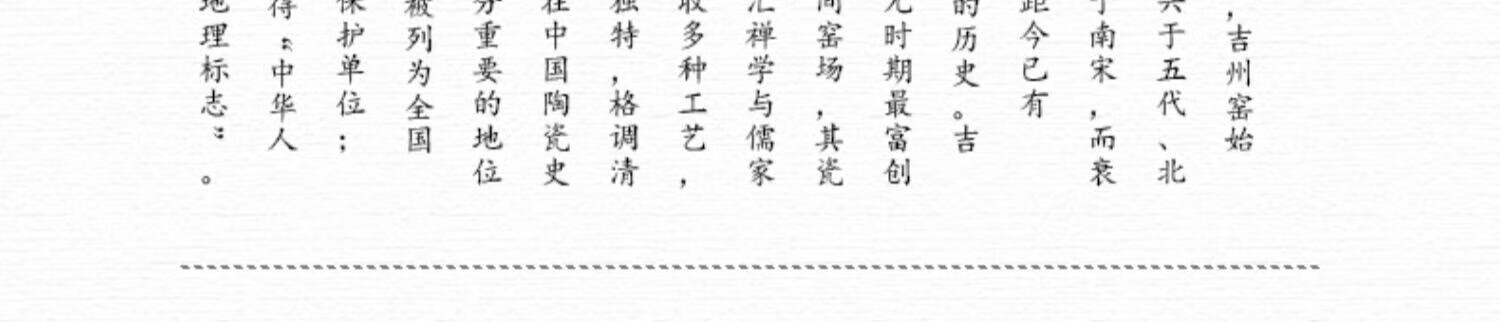 ，吉州窑始
于五代、北
南宋，而衰
距今已有
的历史。吉
元时期最富创
间窑场，其瓷
汇禅学与儒家
取多种工艺，
独特，格调清
在中国陶瓷史
分重要的地位
被列为全国
保护单位；
得“中华人
地理标志”。